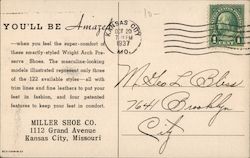 YOU'LL BE Amazed
—when you feel the super-comfort of
these smartly-styled Wright Arch Pre-
serve Shoes. The masculine-looking
models illustrated represent only three
of the 122 available styles—all with
trim lines and fine leathers to put your
feet in fashion, and four patented
features to keep your feet in comfort.
MILLER SHOE CO.
1112 Grand Avenue
Kansas City, Missouri
KANSAS CITY
OCT 20
1937
MO.
1
M. Geo L. Bliss
7641 Brooklyn
City